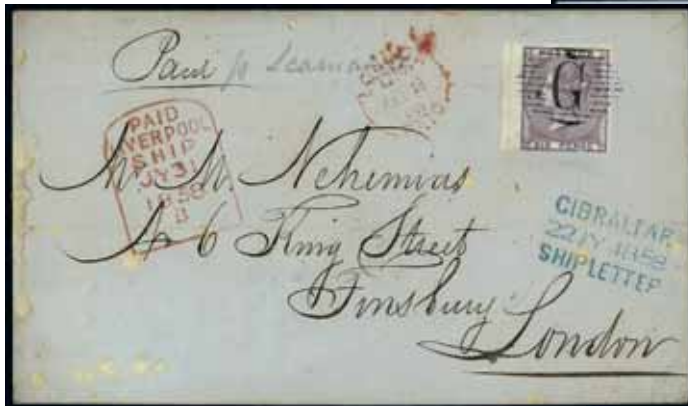 Paid p Seaman
PAID
LIVERPOOL
SHIP
JY 31
1858
B
G
SIX PENCE
Mr. M. Nehemias
No 6 King Street
Finsbury
London
GIBRALTAR
22 JY 1858
SHIP LETTER